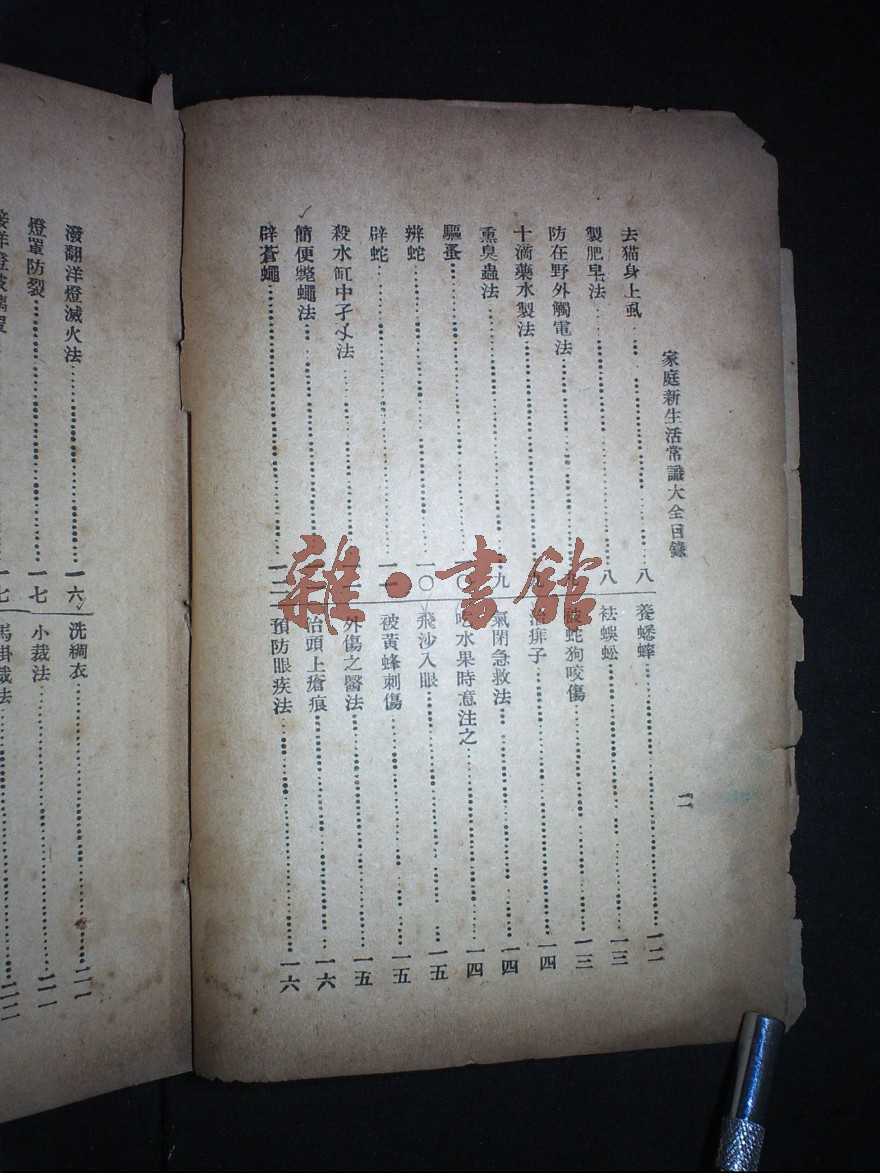 家庭新生活常識大全目錄
二
去猫身上虱……八
製肥皂法……八
防在野外觸電法……九
十滴藥水製法……九
熏臭蟲法……九
驅蚤……一〇
辨蛇……一〇
辟蛇……一一
殺水缸中孑孓法……
簡便斃蠅法……
辟蒼蠅……一二
養蟋蟀……一二
袪蜈蚣……一三
被蛇狗咬傷……一三
治痱子……一四
氣閉急救法……一四
吃水果時意注之……一四
飛沙入眼……一五
被黃蜂刺傷……一五
外傷之醫法……一五
治頭上瘡痕……一六
預防眼疾法……一六
潑翻洋燈滅火法……一六
燈罩防裂……一七
一七
洗綢衣……二一
小裁法……二一
馬掛裁法……二二
雜·書館